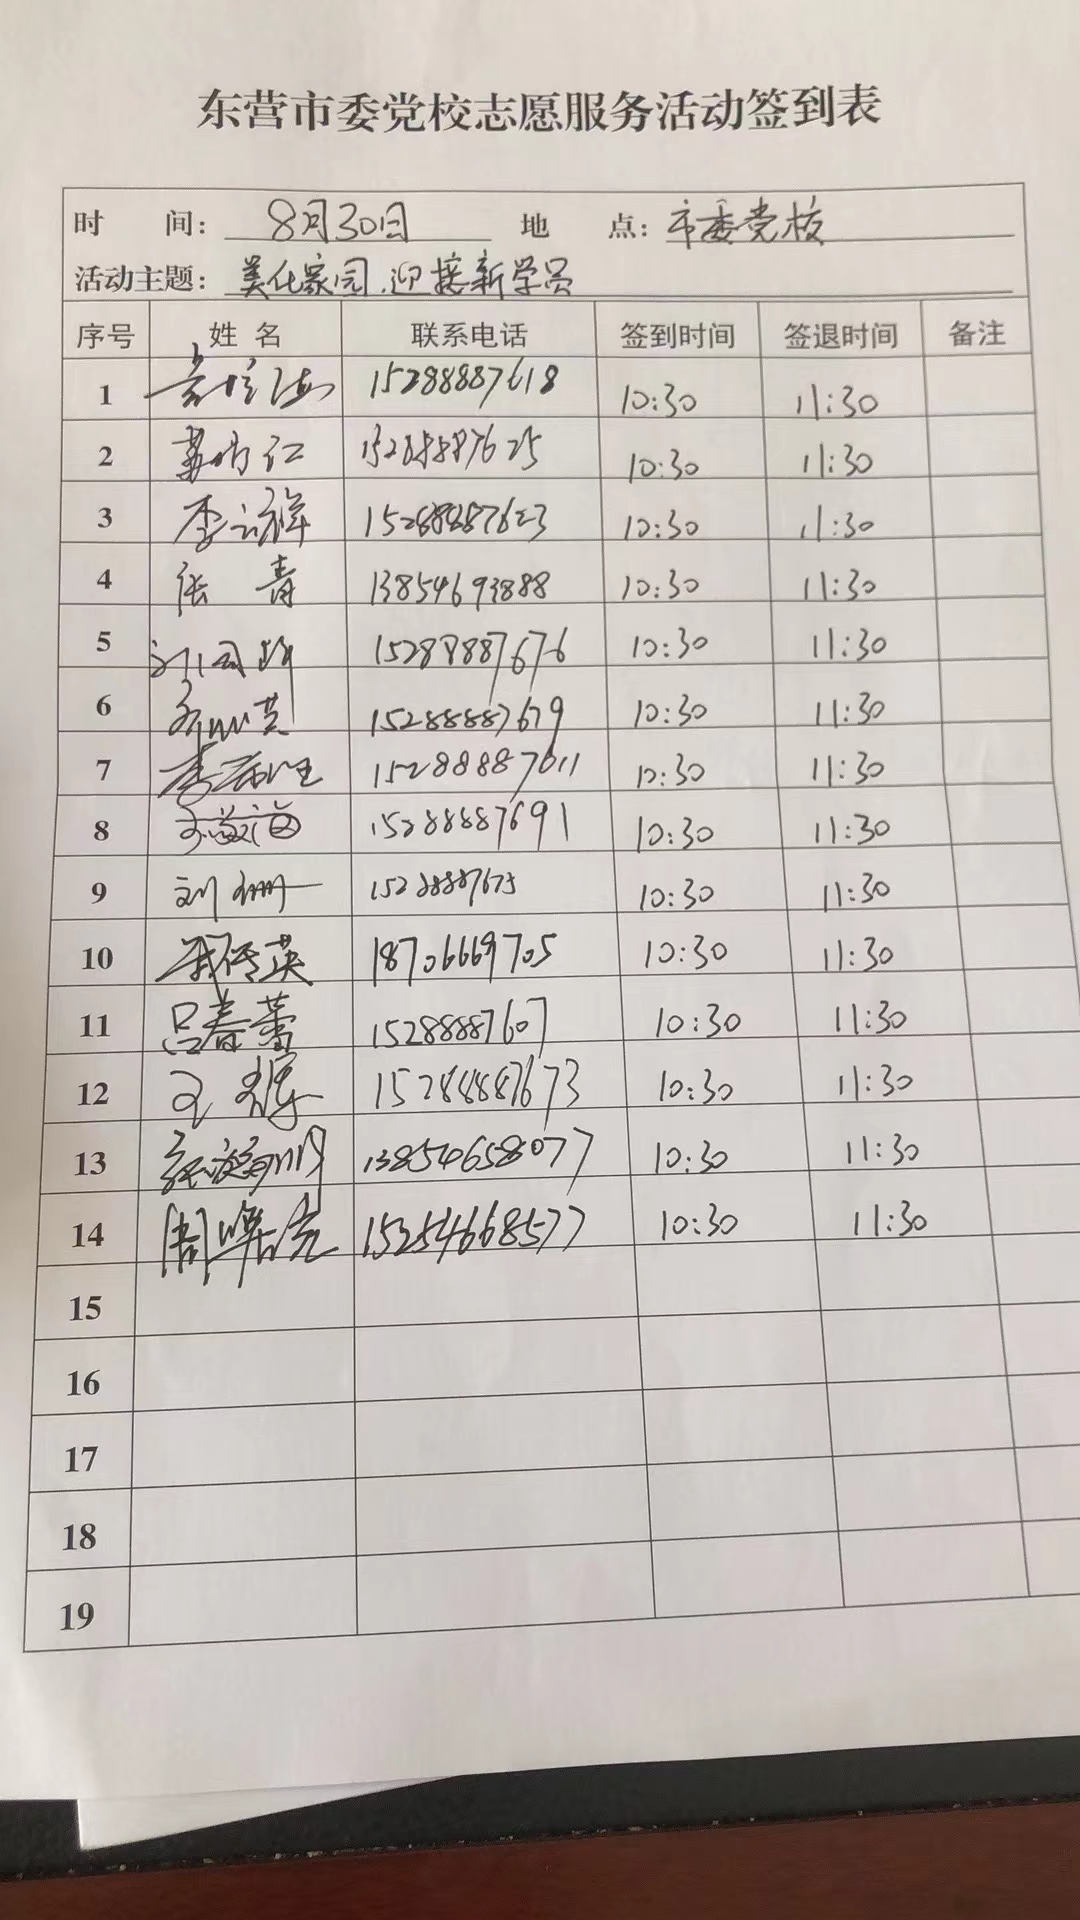 东营市委党校志愿服务活动签到表
时 间: 8月30日 地 点: 市委党校
活动主题: 美化家园,迎接新学员
序号 姓 名 联系电话 签到时间 签退时间 备注
1 15288887618 10:30 11:30
2 15288887625 10:30 11:30
3 李 祥 15288887623 10:30 11:30
4 张 青 13854693888 10:30 11:30
5 刘国 15288887676 10:30 11:30
6 15288887679 10:30 11:30
7 李 15288887611 10:30 11:30
8 15288887691 10:30 11:30
9 刘珊 15288887675 10:30 11:30
10 英 18706669705 10:30 11:30
11 吕春蕾 15288887607 10:30 11:30
12 王 15288887673 10:30 11:30
13 13854658077 10:30 11:30
14 周 15254668577 10:30 11:30
15
16
17
18
19